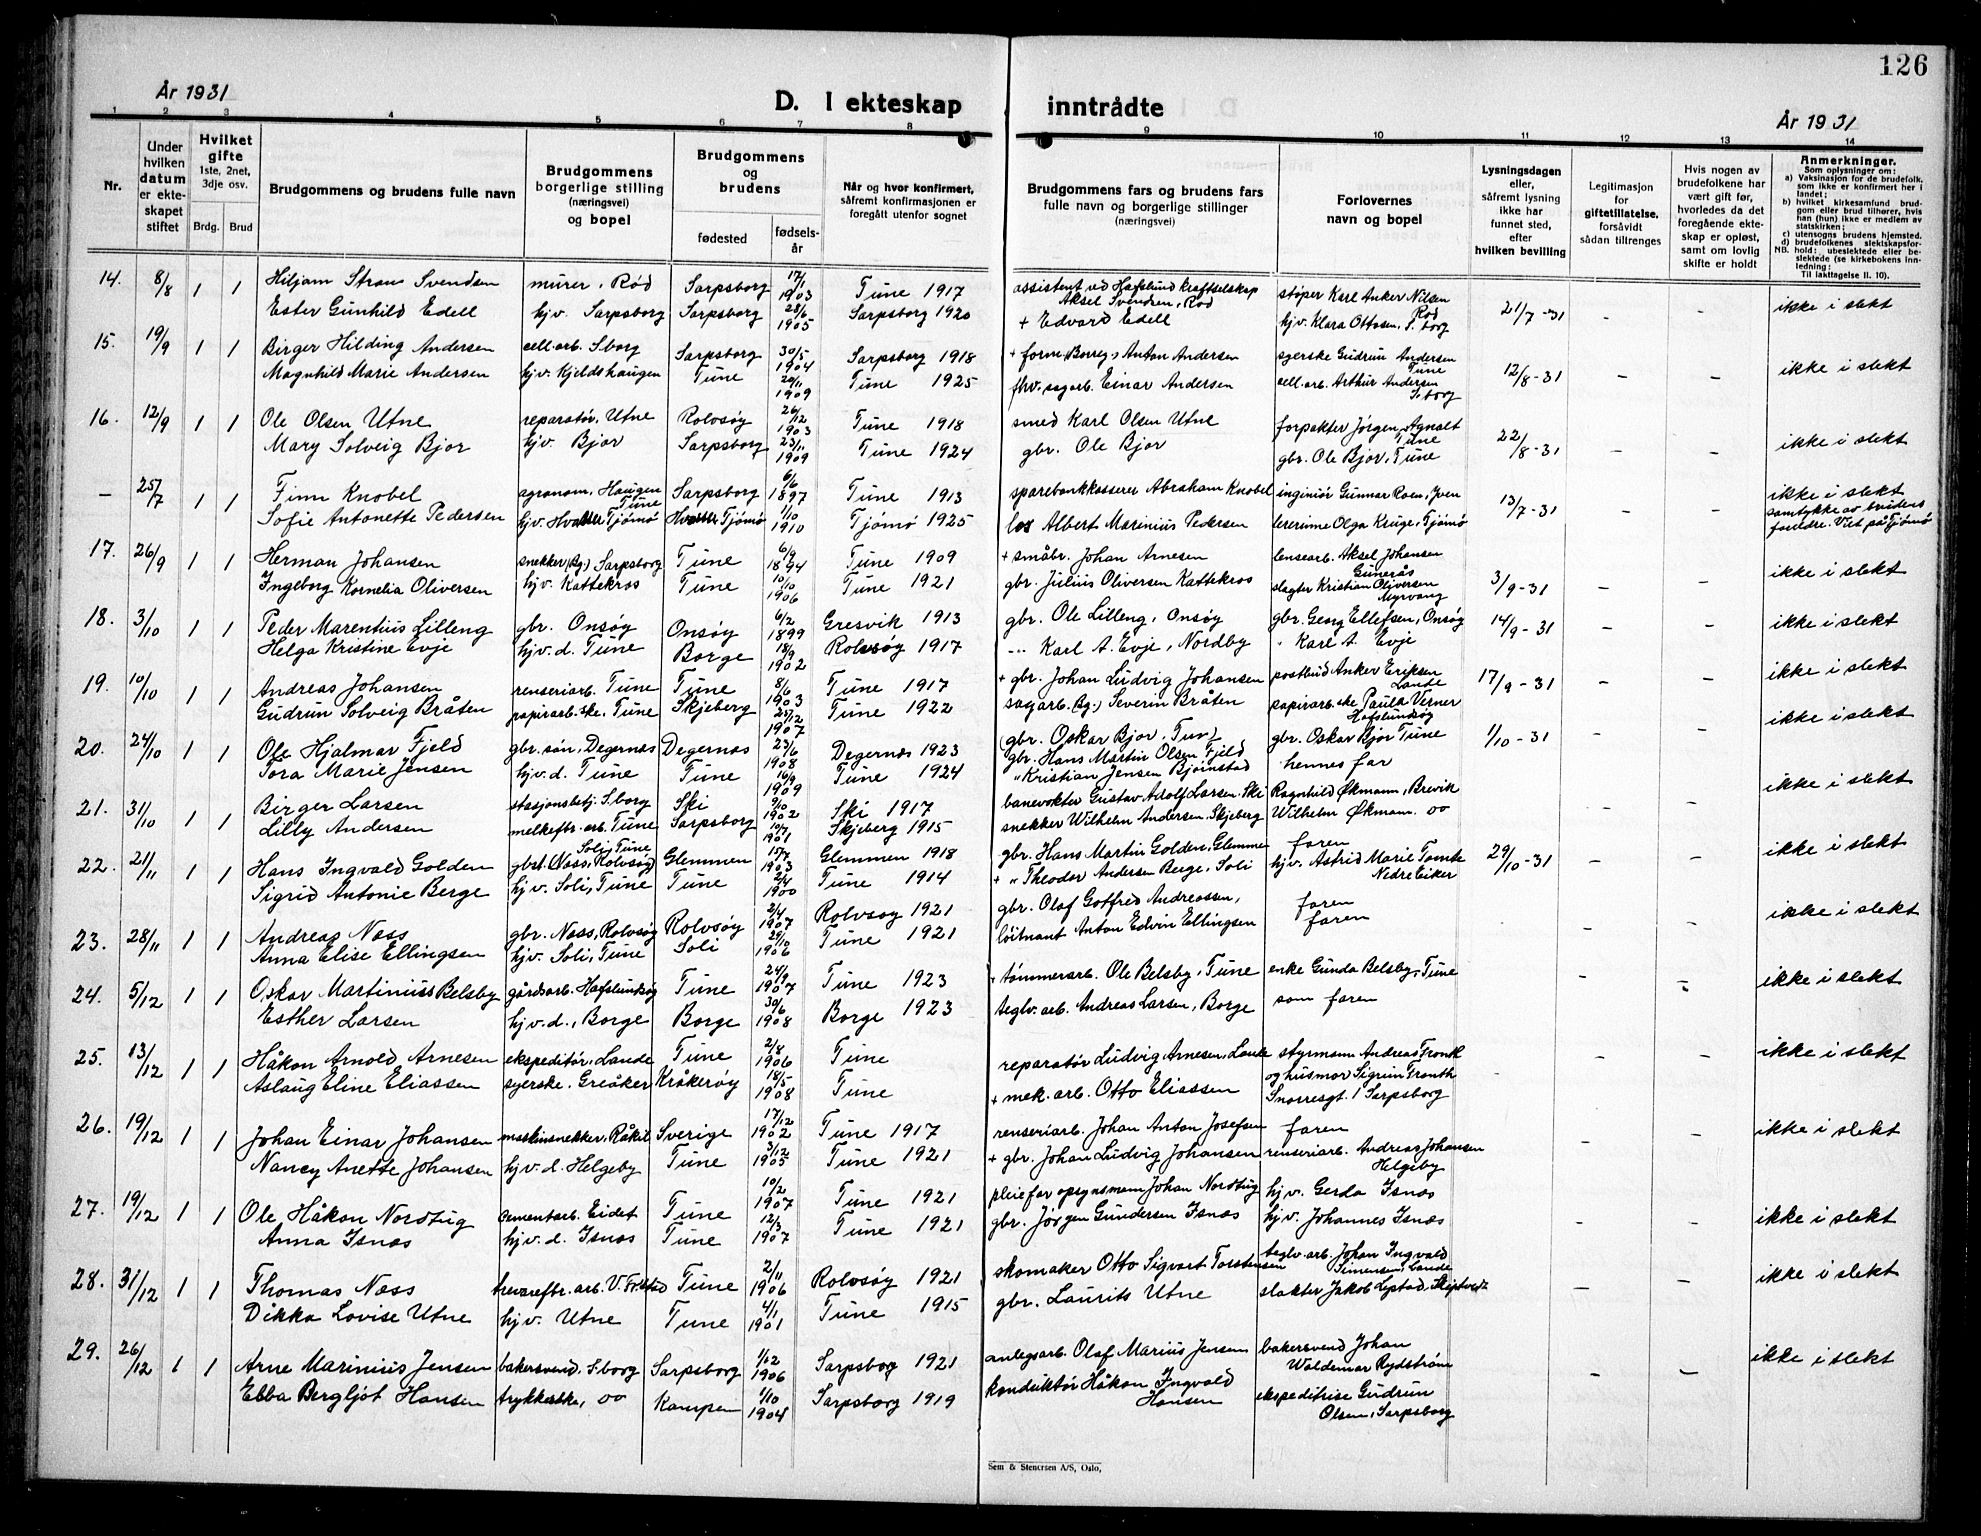 126
År 1931
D. I ekteskap inntrådte
År 1931
1 2 3 4 5 6 7 8 9 10 11 12 13 14
Nr.
Under hvilken datum er ekteskapet stiftet
Hvilket gifte 1ste, 2net, 3dje osv.
Brdg. Brud
Brudgommens og brudens fulle navn
Brudgommens borgerlige stilling (næringsvei) og bopel
Brudgommens og brudens
fødested
fødselsår
Når og hvor konfirmert, såfremt konfirmasjonen er foregått utenfor sognet
Brudgommens fars og brudens fars fulle navn og borgerlige stillinger (næringsvei)
Forlovernes navn og bopel
Lysningsdagen eller, såfremt lysning ikke har funnet sted, efter hvilken bevilling
Legitimasjon for giftetillatelse, forsåvidt sådan tiltrenges
Hvis nogen av brudefolkene har vært gift før, hvorledes da det foregående ekteskap er opløst, samt om lovlig skifte er holdt
Anmerkninger.
Som oplysninger om:
a) Vaksinasjon for de brudefolk, som ikke er konfirmert her i landet;
b) hvilket kirkesamfund brudgom eller brud tilhører, hvis han (hun) ikke er medlem av statskirken;
c) utensogns brudens hjemsted.
d) brudefolkenes slektskapsforhold: ubeslektede eller beslektede (se kirkebokens innledning:
NB.
Til iakttagelse II. 10).
14. 8/8 1 1 Hiljam Strøm Svendsen murer, Rød Sarpsborg 17/1 1903 Tune 1917 assistent ved Hafslund kraftselskap Aksel Svendsen, Rød støper Karl Anker Nilsen Rød 21/7-31 - - ikke i slekt
Ester Gunhild Edell hjv. Sarpsborg Sarpsborg 28/6 1905 Sarpsborg 1920 + Edvard Edell hjv. Klara Ottosen, S.borg
15. 19/9 1 1 Birger Hilding Andersen cell.arb. S.borg Sarpsborg 30/5 1904 Sarpsborg 1918 + form. (Borreg.) Anton Andersen syerske Gudrun Andersen Tune 12/8-31 - - ikke i slekt
Magnhild Marie Andersen hjv. Kjeldshaugen Tune 29/11 1909 Tune 1925 fhv. sagarb. Einar Andersen cell.arb. Arthur Andersen S.borg
16. 12/9 1 1 Ole Olsen Utne reparatør, Utne Rolvsøy 26/12 1903 Tune 1918 smed Karl Olsen Utne forpakter Jørgen Agnalt Tune 22/8-31 - - ikke i slekt
Mary Solveig Bjor hjv. Bjor Sarpsborg 23/11 1909 Tune 1924 gbr. Ole Bjor gbr. Ole Bjor, Tune
- 25/7 1 1 Finn Knobel agronom, Haugen Tune Sarpsborg 6/6 1897 Tune 1913 sparebankkasserer Abraham Knobel inginiør Gunnar Roen, Jven 13/7-31 - - ikke i slekt
Sofie Antonette Pedersen hjv. Tjømø Tjømø 1/10 1910 Tjømø 1925 los Albert Marinius Pedersen lererinne Olga Kruge, Tjømø samtykke av brudens foredre. Viet på Tjømø
17. 26/9 1 1 Herman Johansen snekker (Bg.) Sarpsborg Tune 6/9 1894 Tune 1909 + småbr. Johan Arnesen lensearb. Aksel Johansen Gunerås 3/9-31 - - ikke i slekt
Ingeborg Kornelia Oliversen hjv. Kattekros Tune 10/10 1906 Tune 1921 gbr. Julius Oliversen Kattekros slagter Kristian Oliversen Myrvang
18. 3/10 1 1 Peder Marentius Lilleng gbr. Onsøy Onsøy 6/2 1899 Gresvik 1913 gbr. Ole Lilleng, Onsøy gbr. Georg Ellefsen, Onsøy 14/9-31 - - ikke i slekt
Helga Kristine Evje hjv.d. Tune Borge 18/9 1902 Rolvsøy 1917 Karl A. Evje, Nordby Karl A. Evje
19. 10/10 1 1 Andreas Johansen renseriarb. Tune Tune 8/6 1903 Tune 1917 + gbr. Johan Ludvig Johansen postbud Anker Eriksen Lande 17/9-31 - - ikke i slekt
Gudrun Solveig Bråten papirarb.ske, Tune Skjeberg 25/12 1907 Tune 1922 sagarb. (Bg.) Severin Bråten papirarb.ske Paula Verner Hafslundsøy
20. 24/10 1 1 Ole Hjalmar Fjeld gbr.søn, Degernes Degernes 23/6 1908 Degernes 1923 (gbr. Oskar Bjor, Tune) gbr. Hans Martin Olsen Fjeld gbr. Oskar Bjor Tune 1/10-31 - - ikke i slekt
Tora Marie Jensen hjv.d. Tune Tune 16/9 1909 Tune 1924 " Kristian Jensen Bjørnstad hennes far
21. 31/10 1 1 Birger Larsen stasjonsbetj. S.borg Ski 9/10 1902 Ski 1917 banevokter Gustav Adolf Larsen Ski Ragnhild Økmann, Brevik - - ikke i slekt
Lilly Andersen melkeftr.arb. Tune Sarpsborg 10/7 1901 Skjeberg 1915 snekker Wilhelm Andersen, Skjeberg Wilhelm Økmann. oo
22. 21/11 1 1 Hans Ingvald Golden gbst. (Næss, Rolvsøy) Soli, Tune Glemmen 15/7 1903 Glemmen 1918 gbr. Hans Martin Golden, Glemme faren 29/10-31 - - ikke i slekt
Sigrid Antonie Berge hjv. Soli, Tune Tune 2/4 1900 Tune 1914 + " Theodor Andersen Berge, Soli hjv. Astrid Marie Tomte Nedre Eiker
23. 28/11 1 1 Andreas Næss gbr. Næss, Rolvsøy Rolvsøy 2/4 1907 Rolvsøy 1921 gbr. Olaf Gotfred Andreassen, faren - - ikke i slekt
Anna Elise Ellingsen hjv. Soli, Tune Soli 29/10 1906 Tune 1921 løitnant Anton Edvin Ellingsen faren
24. 5/12 1 1 Oskar Martinius Belsby gårdsarb. Hafslundsøy Tune 24/9 1907 Tune 1923 + tømmerarb. Ole Belsby, Tune enke Gunda Belsby, Tune - - ikke i slekt
Esther Larsen hjv.d., Borge Borge 30/6 1908 Borge 1923 teglv.arb. Andreas Larsen, Borge som faren
25. 13/12 1 1 Håkon Arnold Arnesen ekspeditør, Lande Tune 2/8 1906 Tune reparatør Ludvig Arnesen, Lande styrmann Andreas Tronth - - ikke i slekt
Aslaug Eline Eliassen syerske. Greåker Kråkerøy 18/5 1908 Tune + mek.arb. Otto Eliassen og husmor Sigrun Tronth Snorresgt. 1 Sarpsborg
26. 19/12 1 1 Johan Einar Johansen maskinsnekker, Råkil Sverige 17/12 1902 Tune 1917 renseriarb. Johan Anton Josefsen faren - - ikke i slekt
Nancy Anette Johansen hjv.d. Helgeby Tune 3/12 1905 Tune 1921 + gbr. Johan Ludvig Johansen renseriarb. Andreas Johansen Helgeby
27. 19/12 1 1 Ole Håkon Nordtug cementarb. Eidet Tune 10/2 1907 Tune 1921 pleiefar opsynsmann Johan Nordtug hjv. Gerda Isnæs - - ikke i slekt
Anna Isnæs hjv.d. Isnæs Tune 12/3 1907 Tune 1921 gbr. Jørgen Gundersen Isnæs hjv. Johannes Isnæs
28. 31/12 1 1 Thomas Næss trevareftr.arb. V. Fr.stad Tune 2/11 1906 Rolvsøy 1921 skomaker Otto Sigvart Torstensen teglv.arb. Johan Ingvald Simensen, Lande - - ikke i slekt
Dikka Lovise Utne hjv. Utne Tune 4/1 1901 Tune 1915 gbr. Laurits Utne slakter Jakob Lystad, Skiptvedt
29. 26/12 1 1 Arne Marinius Jensen bakersvend, S.borg Sarpsborg 1/12 1906 Sarpsborg 1921 anlegsarb. Olaf Marius Jensen bakersvend Johan Waldemar Rydstrøm - - ikke i slekt
Ebba Bergljot Hansen trykkerske, oo Kampen 1/10 1904 Sarpsborg 1919 konduktør Håkon Ingvald Hansen ekspeditrise Gudrun Olsen, Sarpsborg
Sem & Stenersen A/S, Oslo,